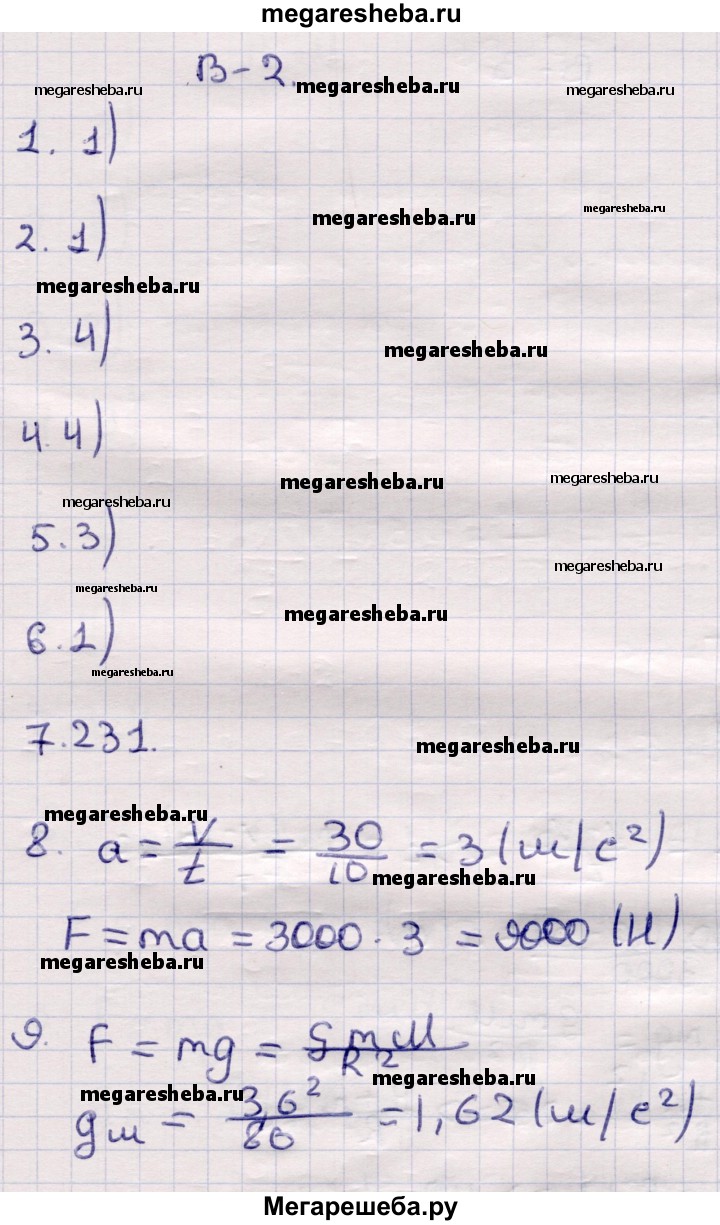 megaresheba.ru
В-2.
megaresheba.ru megaresheba.ru megaresheba.ru
1. 1)
megaresheba.ru
megaresheba.ru
2. 1)
megaresheba.ru
3. 4)
megaresheba.ru
4. 4)
megaresheba.ru megaresheba.ru
megaresheba.ru
5. 3)
megaresheba.ru
megaresheba.ru
megaresheba.ru
6. 1)
megaresheba.ru
7. 231.
megaresheba.ru
megaresheba.ru
8. a = V/t = 30/10 = 3 (м/с²)
megaresheba.ru
F = ma = 3000 · 3 = 9000 (Н)
megaresheba.ru
9. F = mg = GmM/R²
megaresheba.ru
megaresheba.ru
gм = 3,6²/80 = 1,62 (м/с²)
Мегарешеба.ру